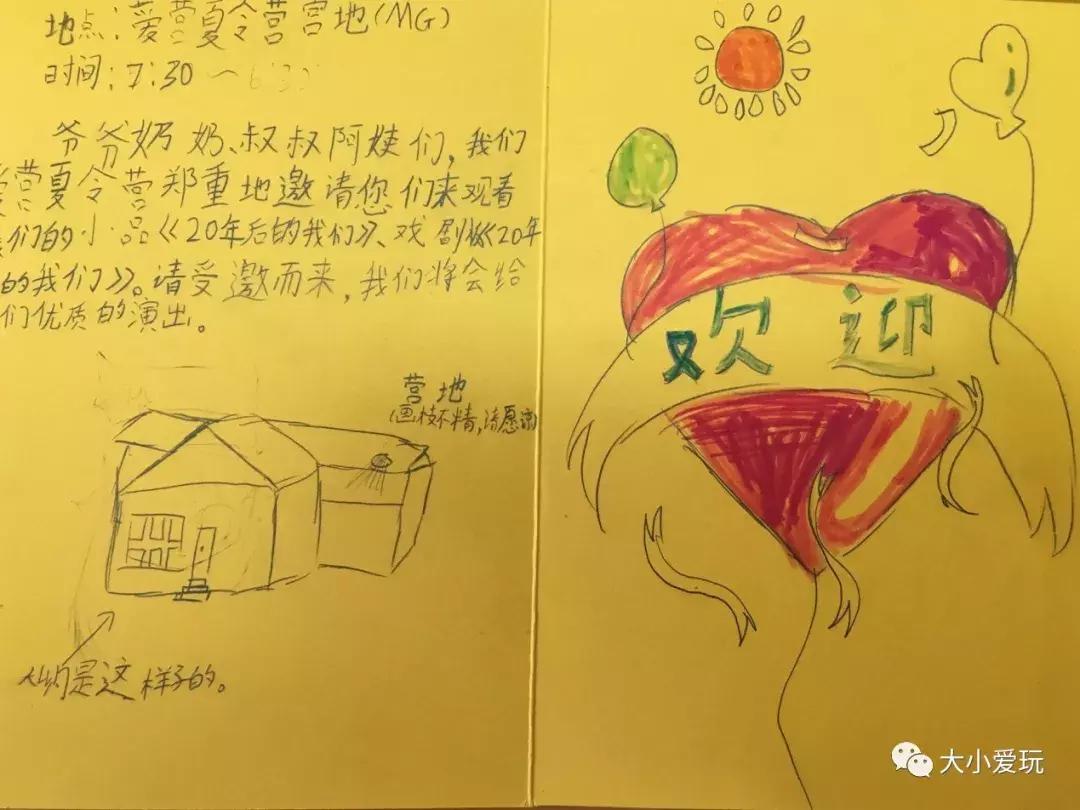 地点:爱营夏令营营地(MG)
时间:7:30~6:30
爷爷奶奶、叔叔阿姨们,我们
爱营夏令营郑重地邀请您们来观看
我们的小品《20年后的我们》、戏剧《20年
的我们》。请受邀而来,我们将会给
们优质的演出。
营地
(画技不精,请愿谅)
大约是这样子的。
欢迎
大小爱玩